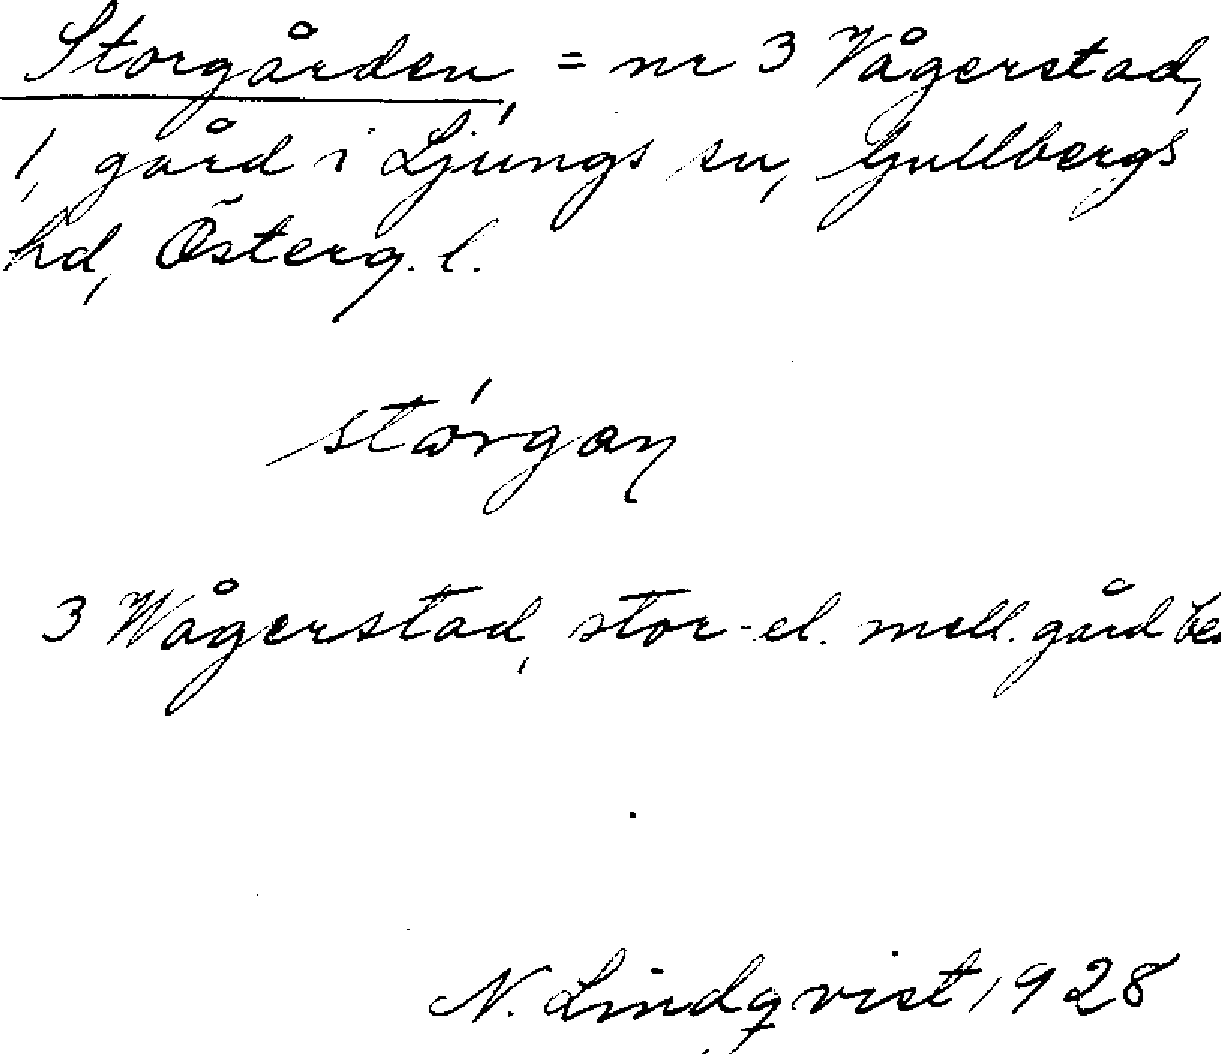 Storgården, = nr 3 Vågerstad,
1, gård i Ljungs sn, Gullbergs
hd, Österg. l.
stórgan
3 Wågerstad, stor- el. mell. gård
N. Lindqvist 1928